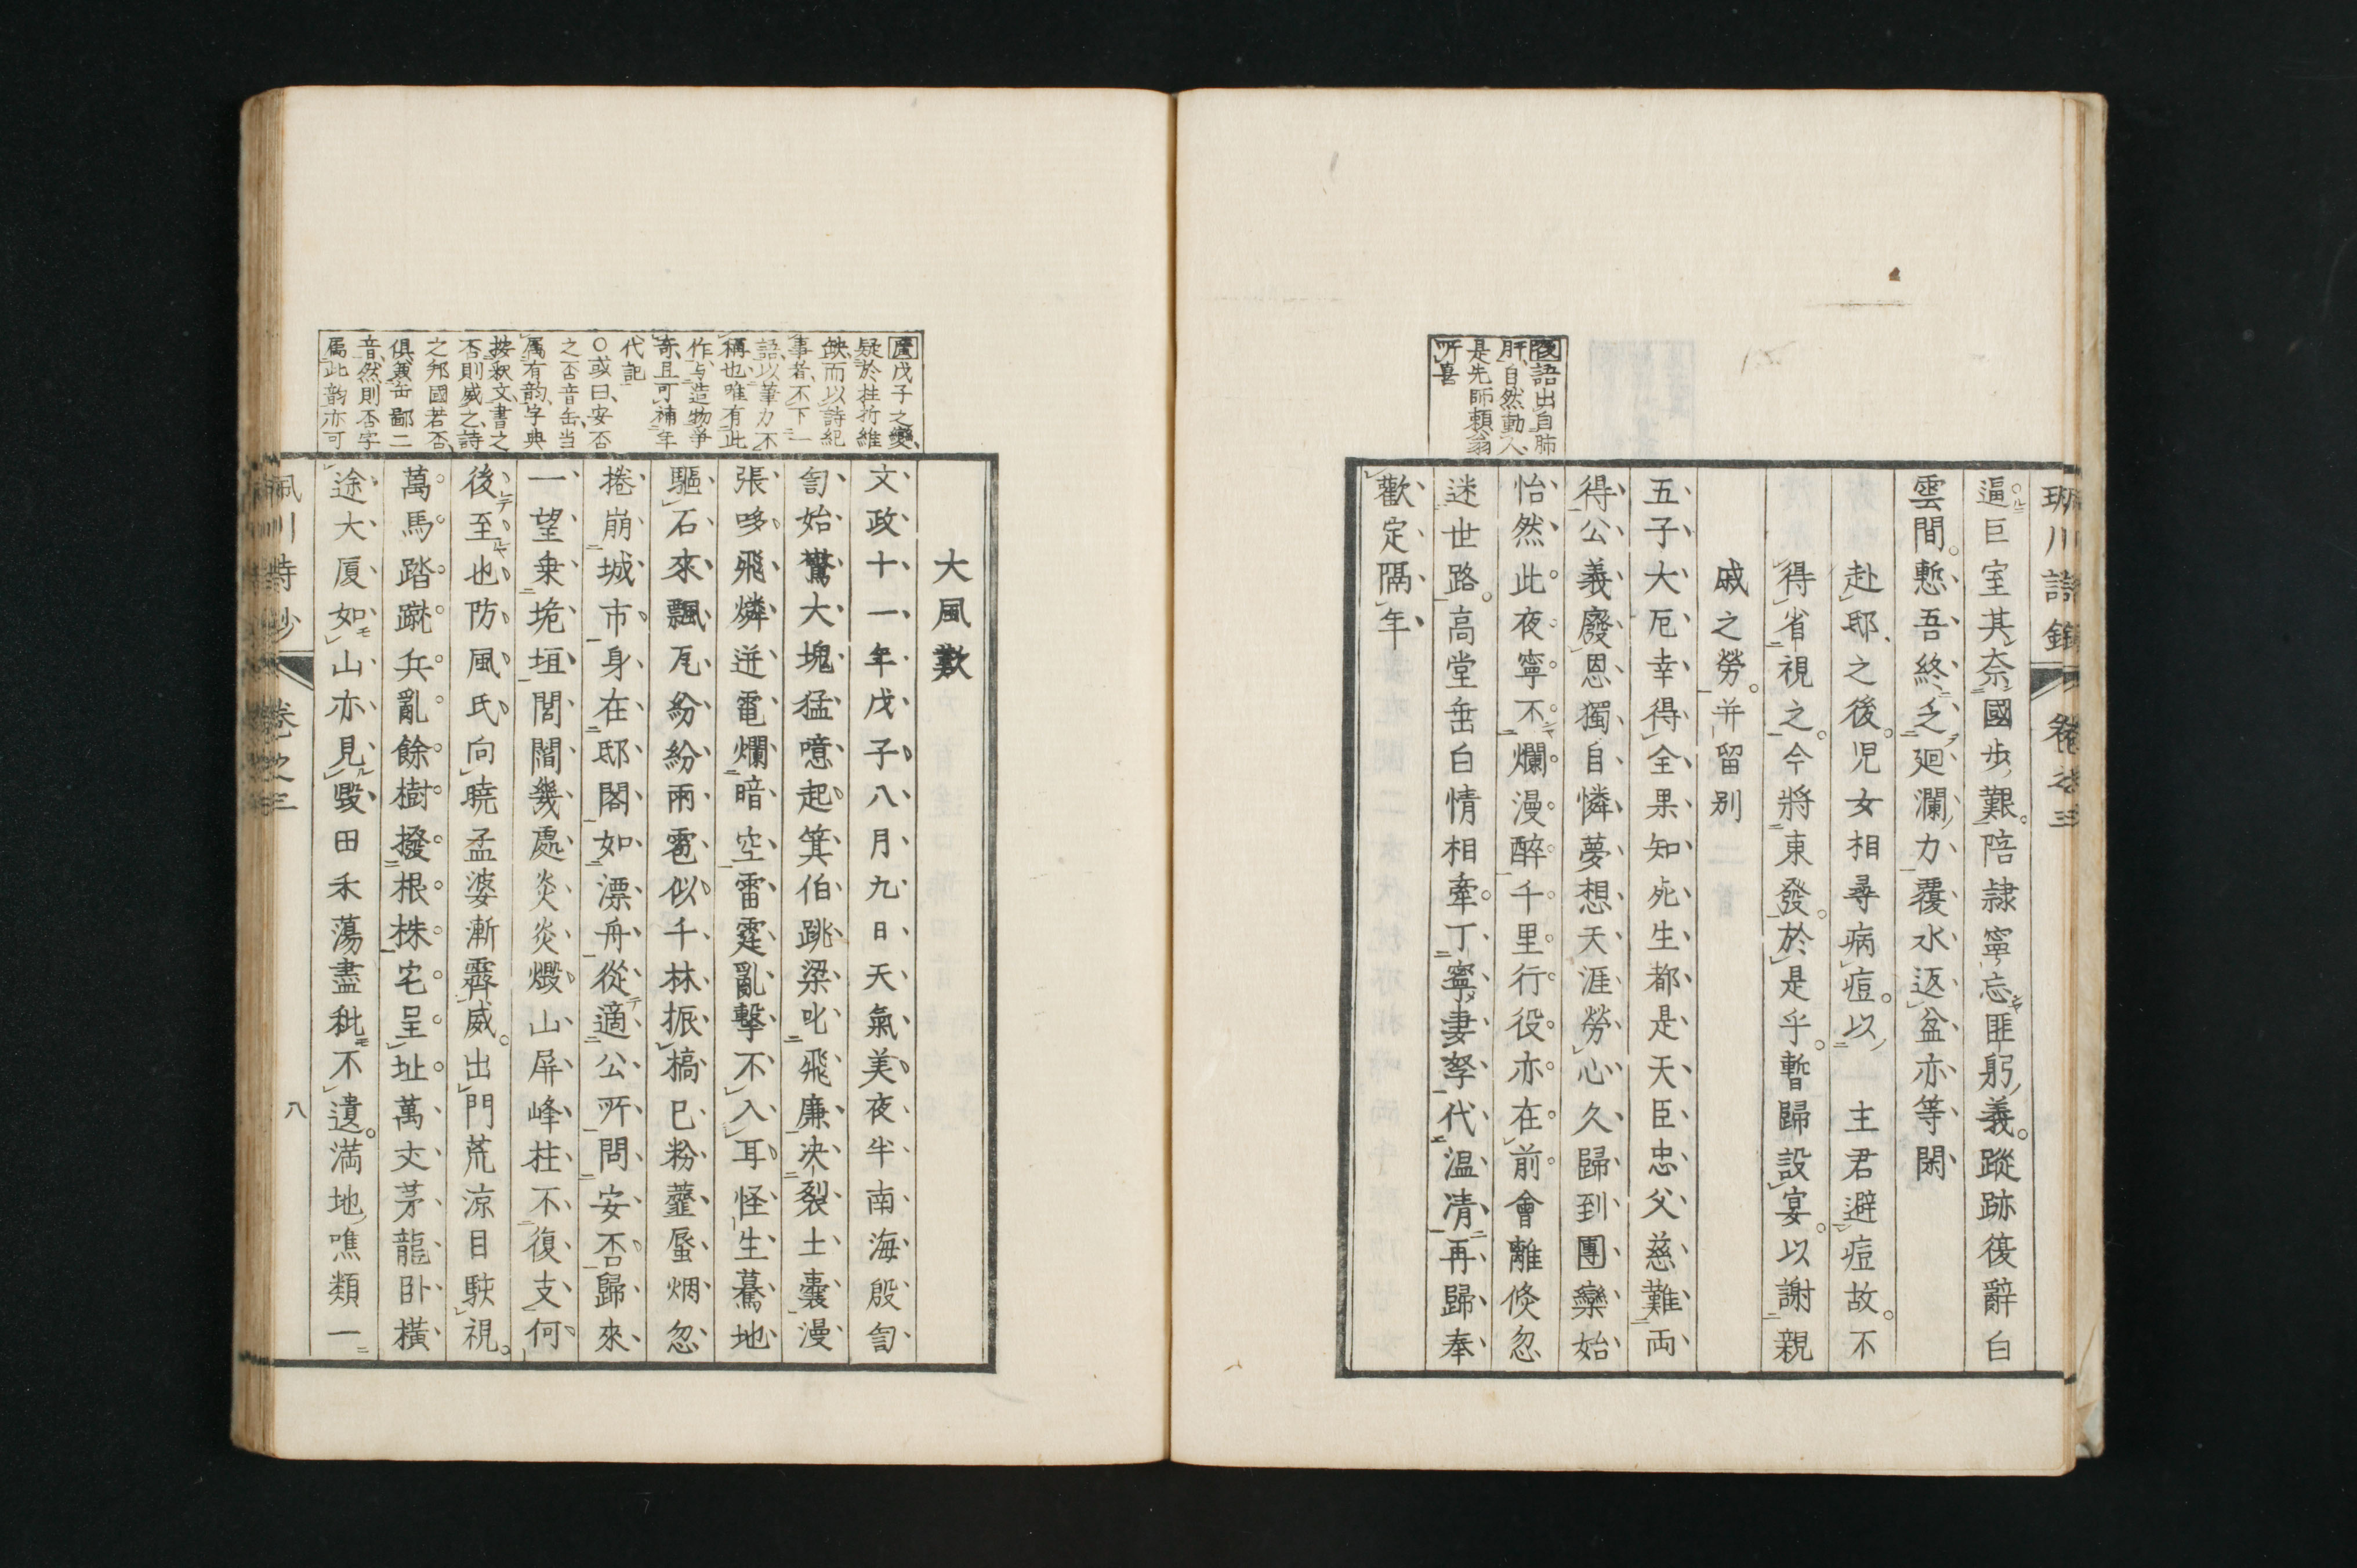 逼巨室其奈國步艱陪隷寧忘匪躬義蹤跡復辭白
雲間慙吾終乏廻瀾力覆水返盆亦等閑
赴邸之後児女相尋病痘以 主君避痘故不
得省視之今將東發於是乎暫歸設宴以謝親
戚之勞并留別
五子大厄幸得全果知死生都是天臣忠父慈難両
得公義廢恩獨自憐夢想天涯勞心久歸到團欒始
怡然此夜寧不爛漫醉千里行役亦在前會離倏忽
迷世路高堂垂白情相牽丁寧妻孥代温凊再歸奉
歡定隔年
語出自肺
肝自然動人
是先師頼翁
所喜
卷之三
大風歎
文政十一年戊子八月九日天氣美夜半南海殷訇
訇始驚大塊猛噫起箕伯跳梁叱飛廉决裂土囊漫
張哆飛燐迸電爛暗空雷霆亂擊不入耳怪生驀地
驅石來飄瓦紛紛雨雹似千林振槁已粉虀蜃烟忽
捲崩城市身在邸閣如漂舟從適公所問安否歸來
一望乗垝垣閭閻幾處炎炎燬山屏峰柱不復支何
後至也防風氏向曉孟婆漸霽威出門荒涼目駭視
萬馬踏蹴兵亂餘樹撥根株宅呈址萬丈茅龍卧横
途大厦如山亦見毀田禾蕩盡秕不遺満地噍類一
戊子之變
疑於柱折維
缺而以詩紀
事者不下一
語以筆力不
稱也唯有此
作与造物爭
奇且可補年
代記
○或曰安否
之否音缶當
属有韵字典
按釈文書之
否則威之詩
之邦國若否
俱兼缶鄙二
音然則否字
属此韵亦可
珮川詩鈔
卷之三
八